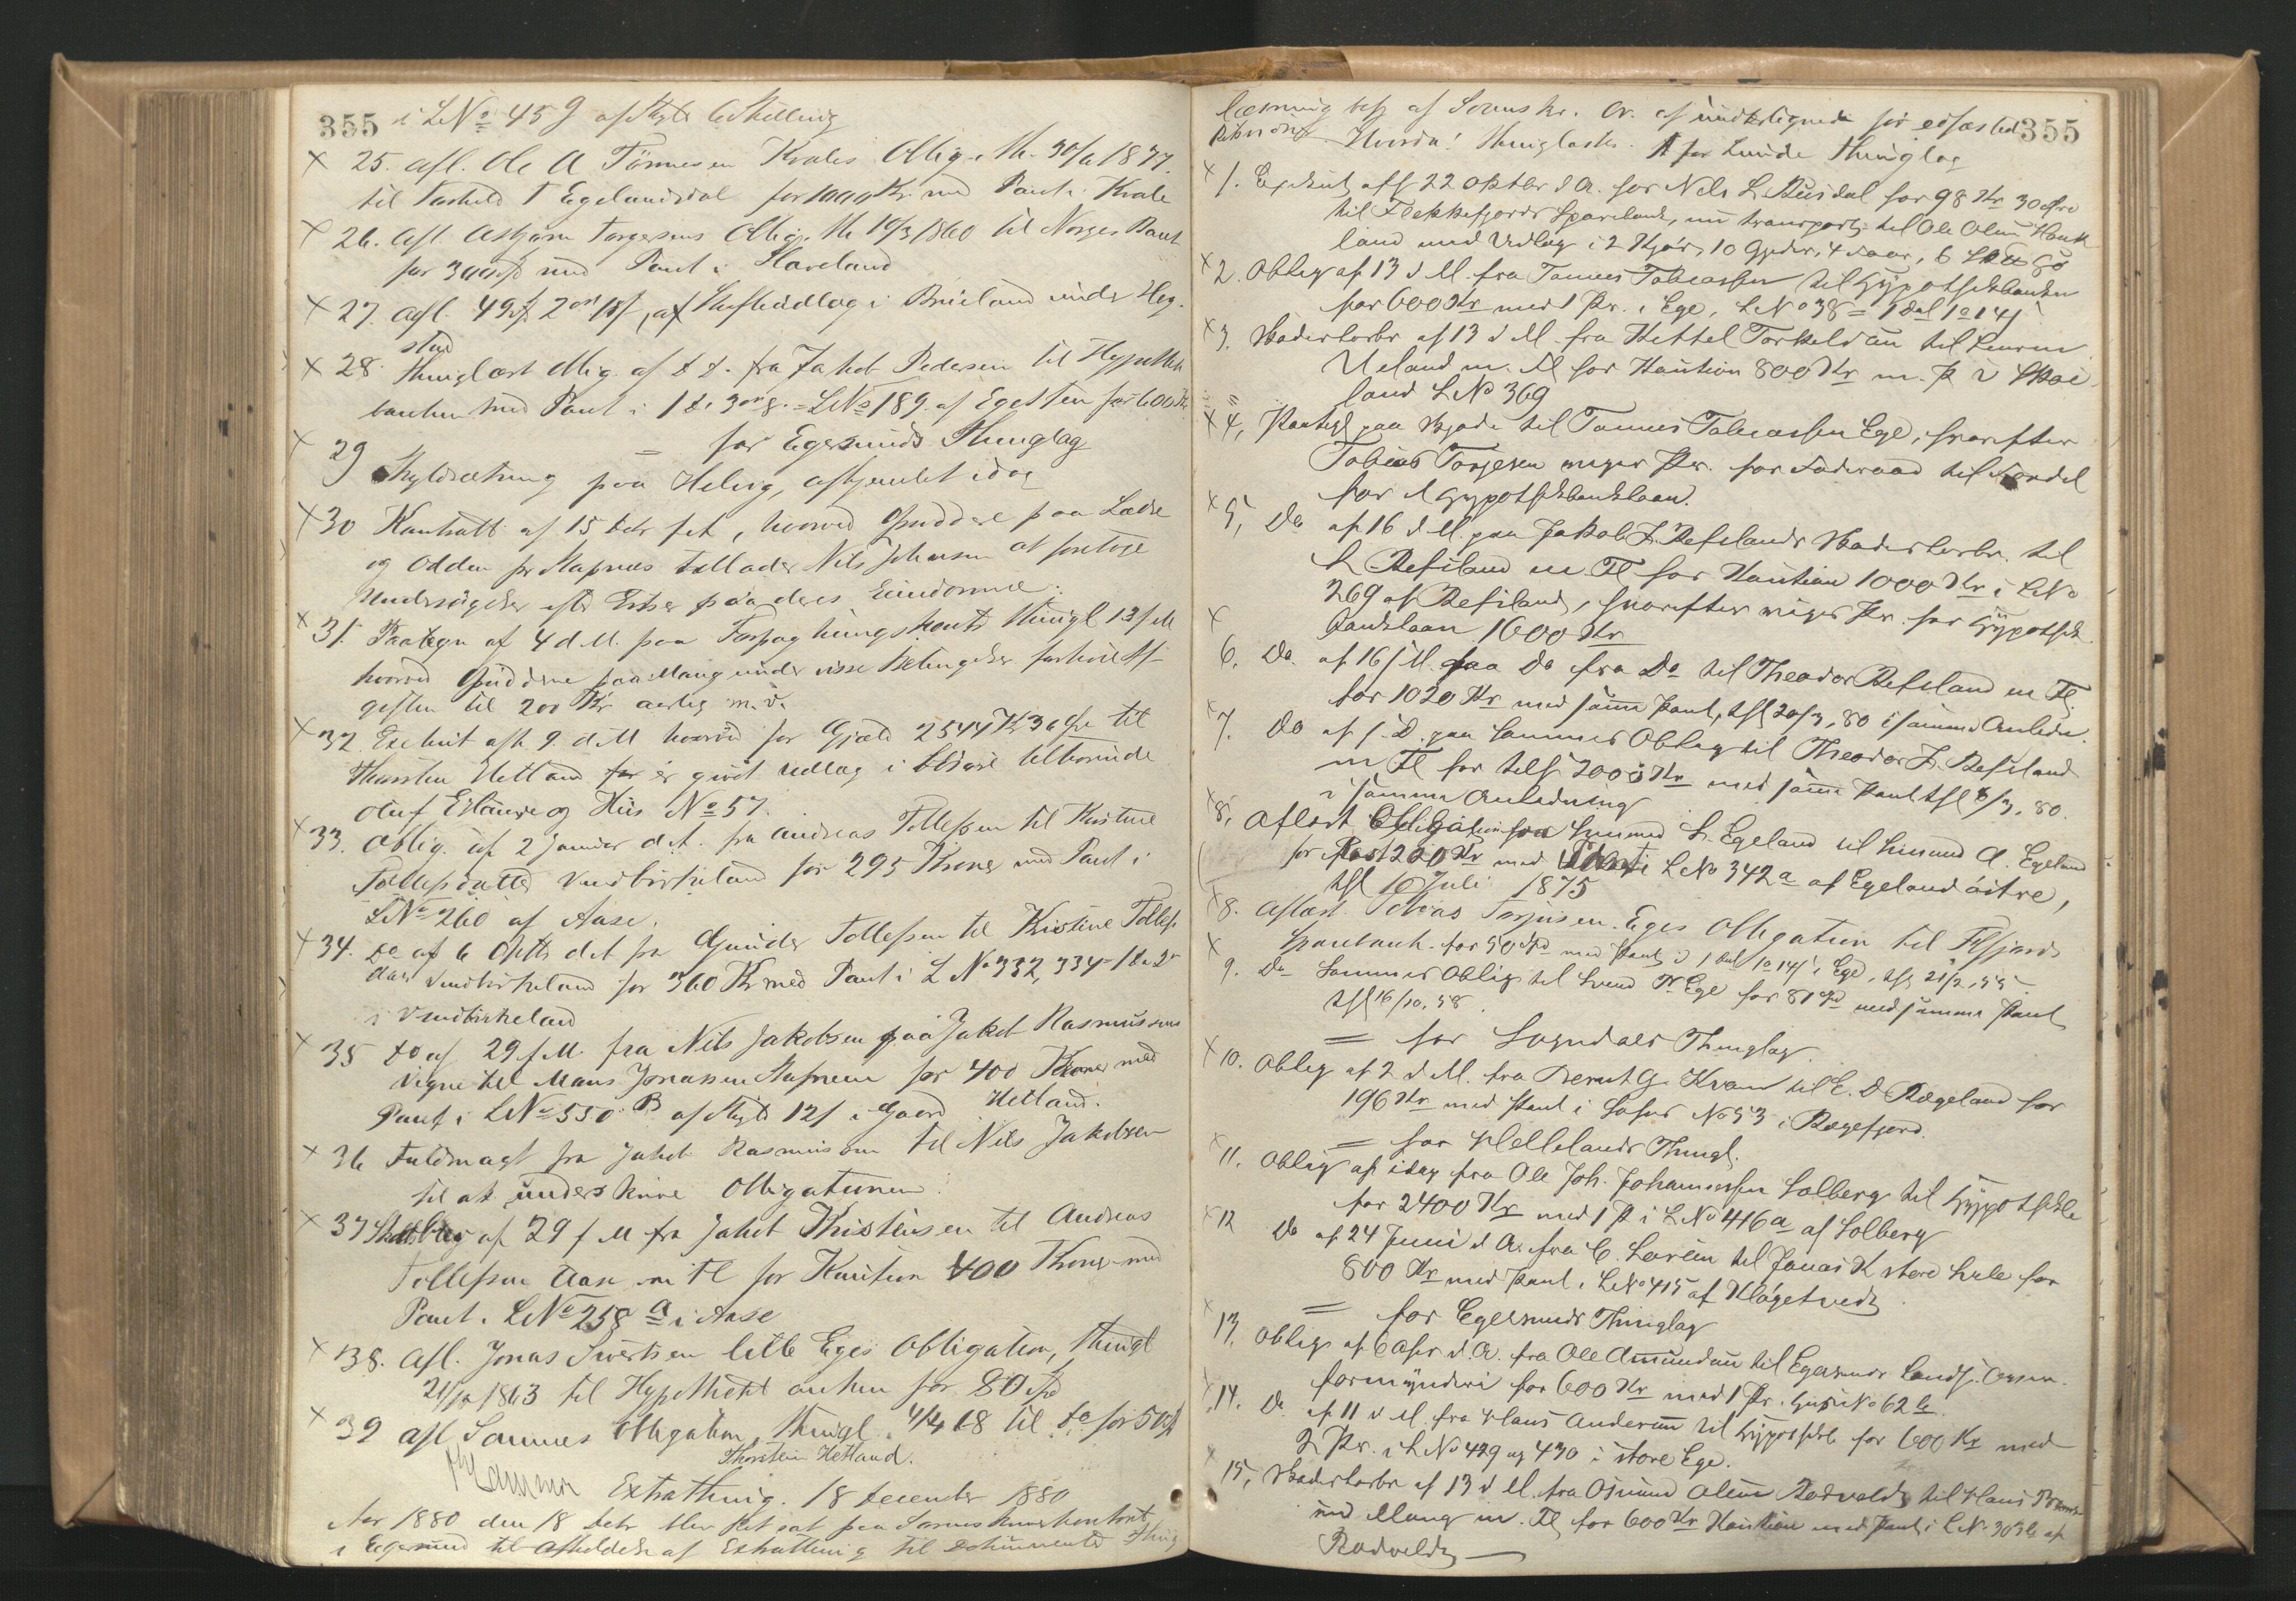 355 i LNo 459 af Skyld 6 Skilling
× 25. Afl. Ole A Tönnesen Kvales Oblig. Th. 30/6 1877.
til Torkild T Egelandsdal for 1000 Kr. med Pant i Kvale
× 26. Afl. Asbjörn Torgersens Oblig. Th 10/3 1860 til Norges Bank
for 300 Spd med Pant i Haveland
× 27. Afl. 49 Spd 2 ort 18 s, af Skifteudlæg i Brueland under Heg-
stad
× 28. Thinglæst Oblig. af d. d. fra Jakob Pedersen til Hypothek
banken med Pant i 1 d. 3 ort 8. = LNo 189 af Egesten for 600 Kr
× = for Egersunds Thinglag
29 Skyldsætning paa Helvig, afhjemlet idag
× 30 Kontrakt af 15 Debr sit, hvorved Opsiddere paa Lædre
og Odden pr Stapnæs tillader Nils Johansen at foretage
Undersögelser efter Ertser paa deres Eiendomme.
× 31. Paategn af 4 d. M. paa Forpagtningskont. thingl 13 f M
hvorved Opsidderne paa Mong under visse Betingelser forhöie Af-
giften til 200 Kr aarlig m. v.
× 32. Execut afh 9. d. M hvorved for Gjæld 2544 Kr 36 Öre til
Thorsten Hetland er gjort Udlæg i Lösöre tilhörende
Oluf Eslaure og Hus No 57.
× 33. Oblig. af 2 Januar d. A. fra Andreas Tollefsen til Kristine
Tollefsdatter Vindbirkeland for 295 Kroner med Pant i
LNo 260 af Aase.
× 34. Do af 6 Septb d. A fra Gunder Tollefsen til Kristine Tollefs
datr Vindbirkeland for 360 Kr med Pant i LNo 332, 334 = 1 d. 2 ort
i Vindbirkeland
× 35 do af 29 f. M. fra Nils Jakobsen paa Jakob Rasmussens
Vegne til Mans Jonassen Stapnem for 400 Kroner med
Pant i LNo 550 B af Skyld 12 s i Gaard Hetland.
× 36 Fuldmagt fra Jakob Rasmussen til Nils Jakobsen
til at underskrive Obligationen
× 37 Skadeslbr af 29 f M fra Jakob Kristensen til Andreas
Tollefsen Aase m. Fl for Kaution 400 Kroner med
Pant i LNo 258 a i Aase
× 38. Afl. Jonas Sivertsen lille Eges Obligation, thingl
21/10 1863 til Hypothekbanken for 80 Spd
× 39 Afl Sammes Obligation thingl. 4/4 68 til do for 50 Spd
Thorstein Hetland.
Extrathing. 18 December 1880
Aar 1880 den 18 Debr blev Ret sat paa Sorenskriverkontoret
i Egersund til Afholdelse af Extrathing til Dokumenters Thing
læsning bestj af Sorenskr. Ov. af undertegnede för edfæstede 355
Retsvidner Hvorda! thinglæstes. A for Lunde Thinglag
× 1. Exekut afh 22 Oktbr d A. for Nels L Rusdal for 98 Kr 30 Öre
til Flekkefjords Sparebank, nu transport. til Ole Olsen Hauk
land med Udlæg i 2 Kjör, 10 Gjeder, 4 Faar, 6 L
× 2. Oblig af 13 d M. fra Tönnes Tobiassen til Hypothekbanken
for 600 Kr med 1 Pr. i Ege, LNo 38 = 1 Dal 1 o 14 s
× 3. Skadesløsbr af 13 d M. fra Kettel Torkelsen til
Ueland m. Fl for Kaution 800 Kr m. P i Skoi-
land LNo 369
× 4, Paategn paa Skjøde til Tönnes Tobiassen Ege, hvorefter
Tobias Torjesen viger Pr. for Føderaad til Fordel
for Hypothekbanklaan.
× 5, Do af 16 d M. paa Jakob J. Refslands Skadesløsbr. til
L Refsland m. Fl for Kaution 1000 Kr i LNo
269 af Refsland, hvorefter viger Pr. for Hypothek-
banklaan 1600 Kr
×
6, Do. af 16/ M. paa Do fra Do til Theodor Refsland m Fl.
for 1020 Kr med samme Pant, thl 20/3, 80 i samme Anledn.
× 7. Do af s. D. paa Sammes Oblig til Theodor J. Refsland
m Fl for tils 2000 Kr med samme Pant thl 8/3, 80.
i samme Anledning
× 8, Aflæst Obligation fra Gunmund S. Egeland til Gunmund A. Egeland
for Rest 220 Kr med Pant i LNo 342 a af Egeland östre,
thl 10 Juli 1875
× 8. Aflæst. Tobias Torjusen Eges Obligation til Fl.fjords
Sparebank for 50 Spd med Pant i 1 Dal 1 o 14 s i Ege, thl 21/2, 55
× 9. Do Sammes Oblig til Svend T. Ege for 81 Spd med samme Pant
thl 16/10, 58.
= for Sogndals Thinglag.
× 10. Oblig af 2 d M. fra Bernt G. Kvam til E. D Rægeland for
196 Kr med Pant i Søhus No 53 i Rægefjord.
= for Hellelands Thingl.
× 11. Oblig af idag fra Ole Joh. Johannessen Solberg til Hypothekb
for 2400 Kr med 1 P i LNo 416 a af Solberg
× 12 Do af 24 Juni d A. fra C. Loreim til Jonas K store Svele for
800 Kr med Pant i LNo 415 af Klögetvedt
= for Egersunds Thinglag
× 13, Oblig af 6 d. A. fra Ole Amundsen til Egersunds Lands. Over-
formynderi for 600 Kr med 1 Pr. i Hus No 62 b
× 14. Do af 11 d M. fra Hans Andersen til Hypothekb for 600 Kr med
2 Pr. i LNo 429 og 430 i store Ege.
× 15, Skadesløsbr af 13 d M. fra Osmund Olsen Rodveldt til Hans
Mong m. Fl for 600 Kr Kaution med Pant i LNo 303 b af
Rodveldt